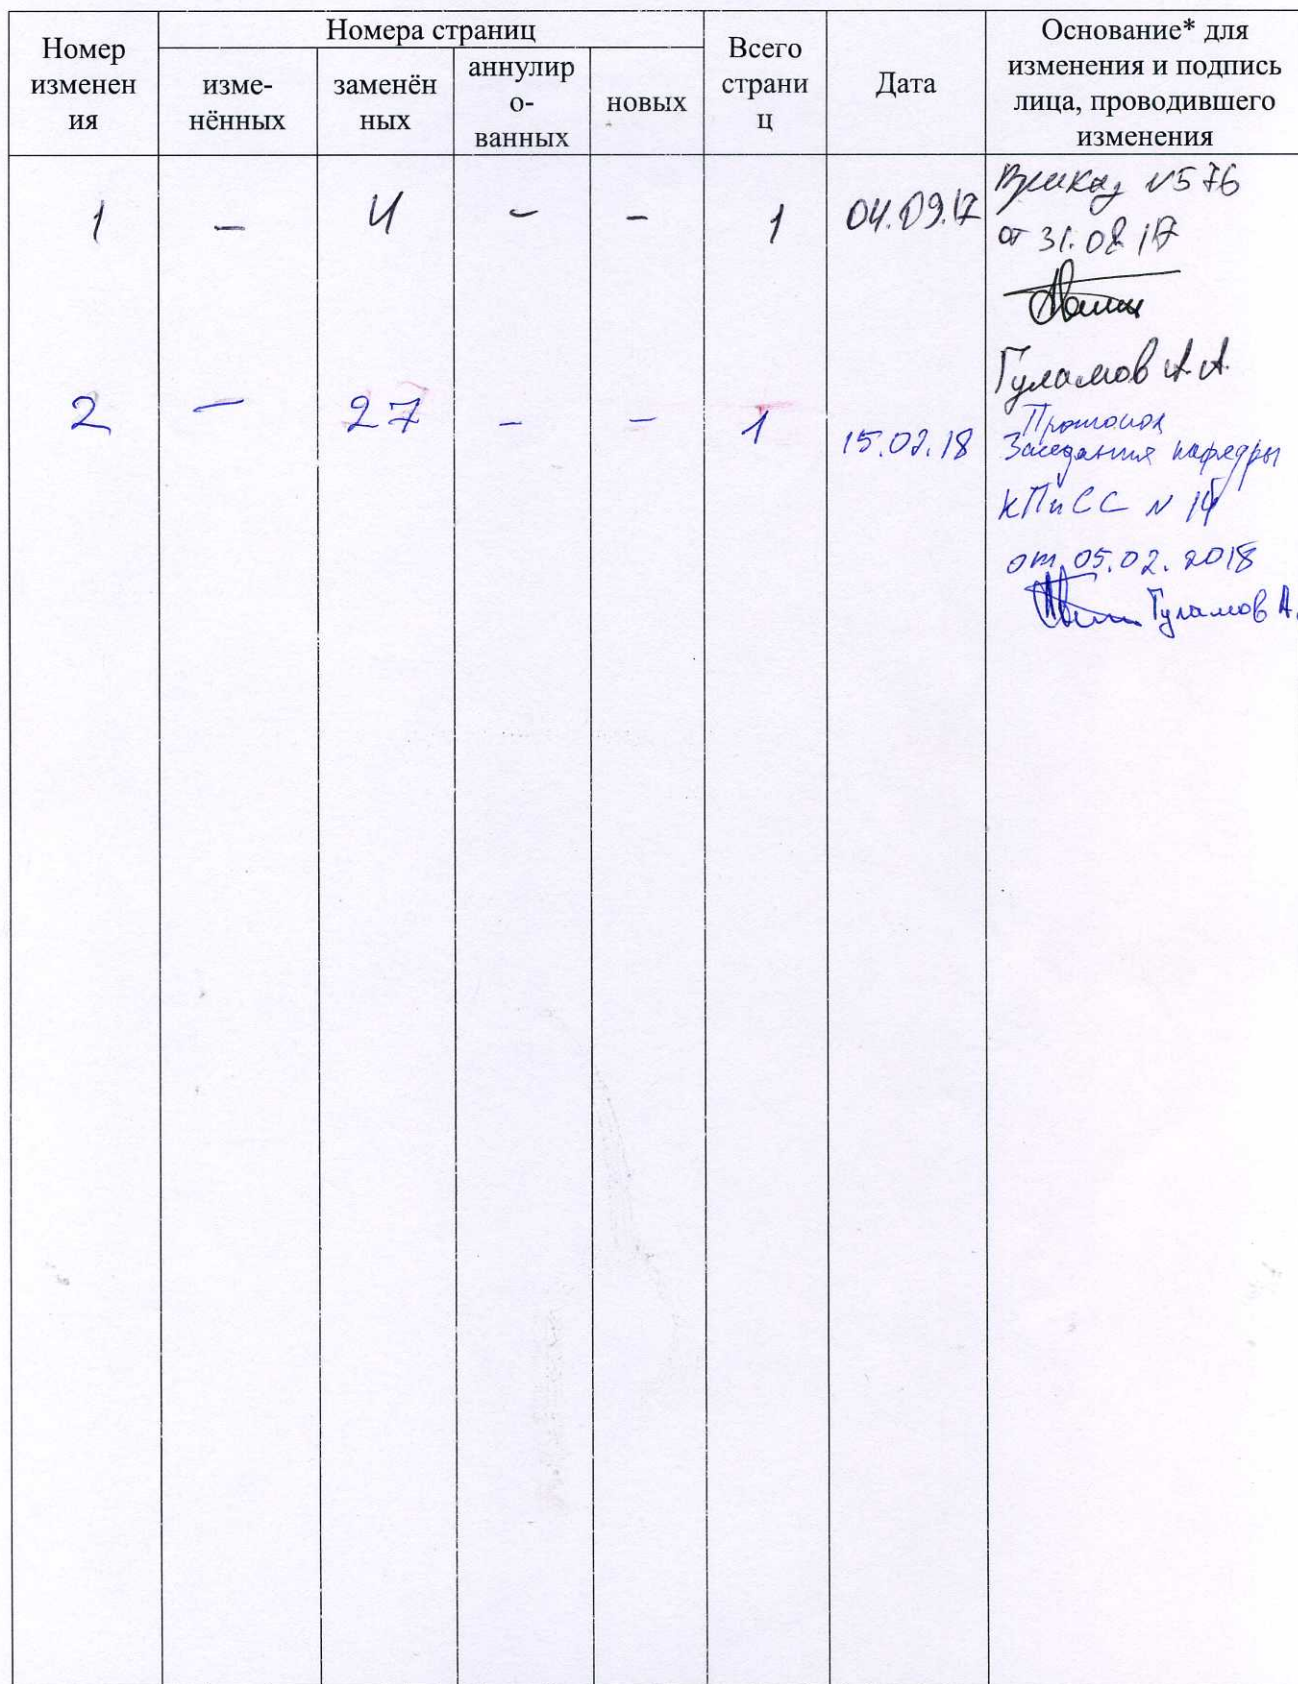 Номер
изменен
ия
Номера страниц
изме-
нённых
заменён
ных
аннулир
о-
ванных
новых
Всего
страни
ц
Дата
Основание* для
изменения и подпись
лица, проводившего
изменения
1 – 4 – – 1 04.09.17 Приказ №576
от 31.08.17
Гуламов А.А.
2 – 27 – – 1 15.02.18 Протокол
Заседания кафедры
КПиСС № 14
от 05.02.2018
Гуламов А.